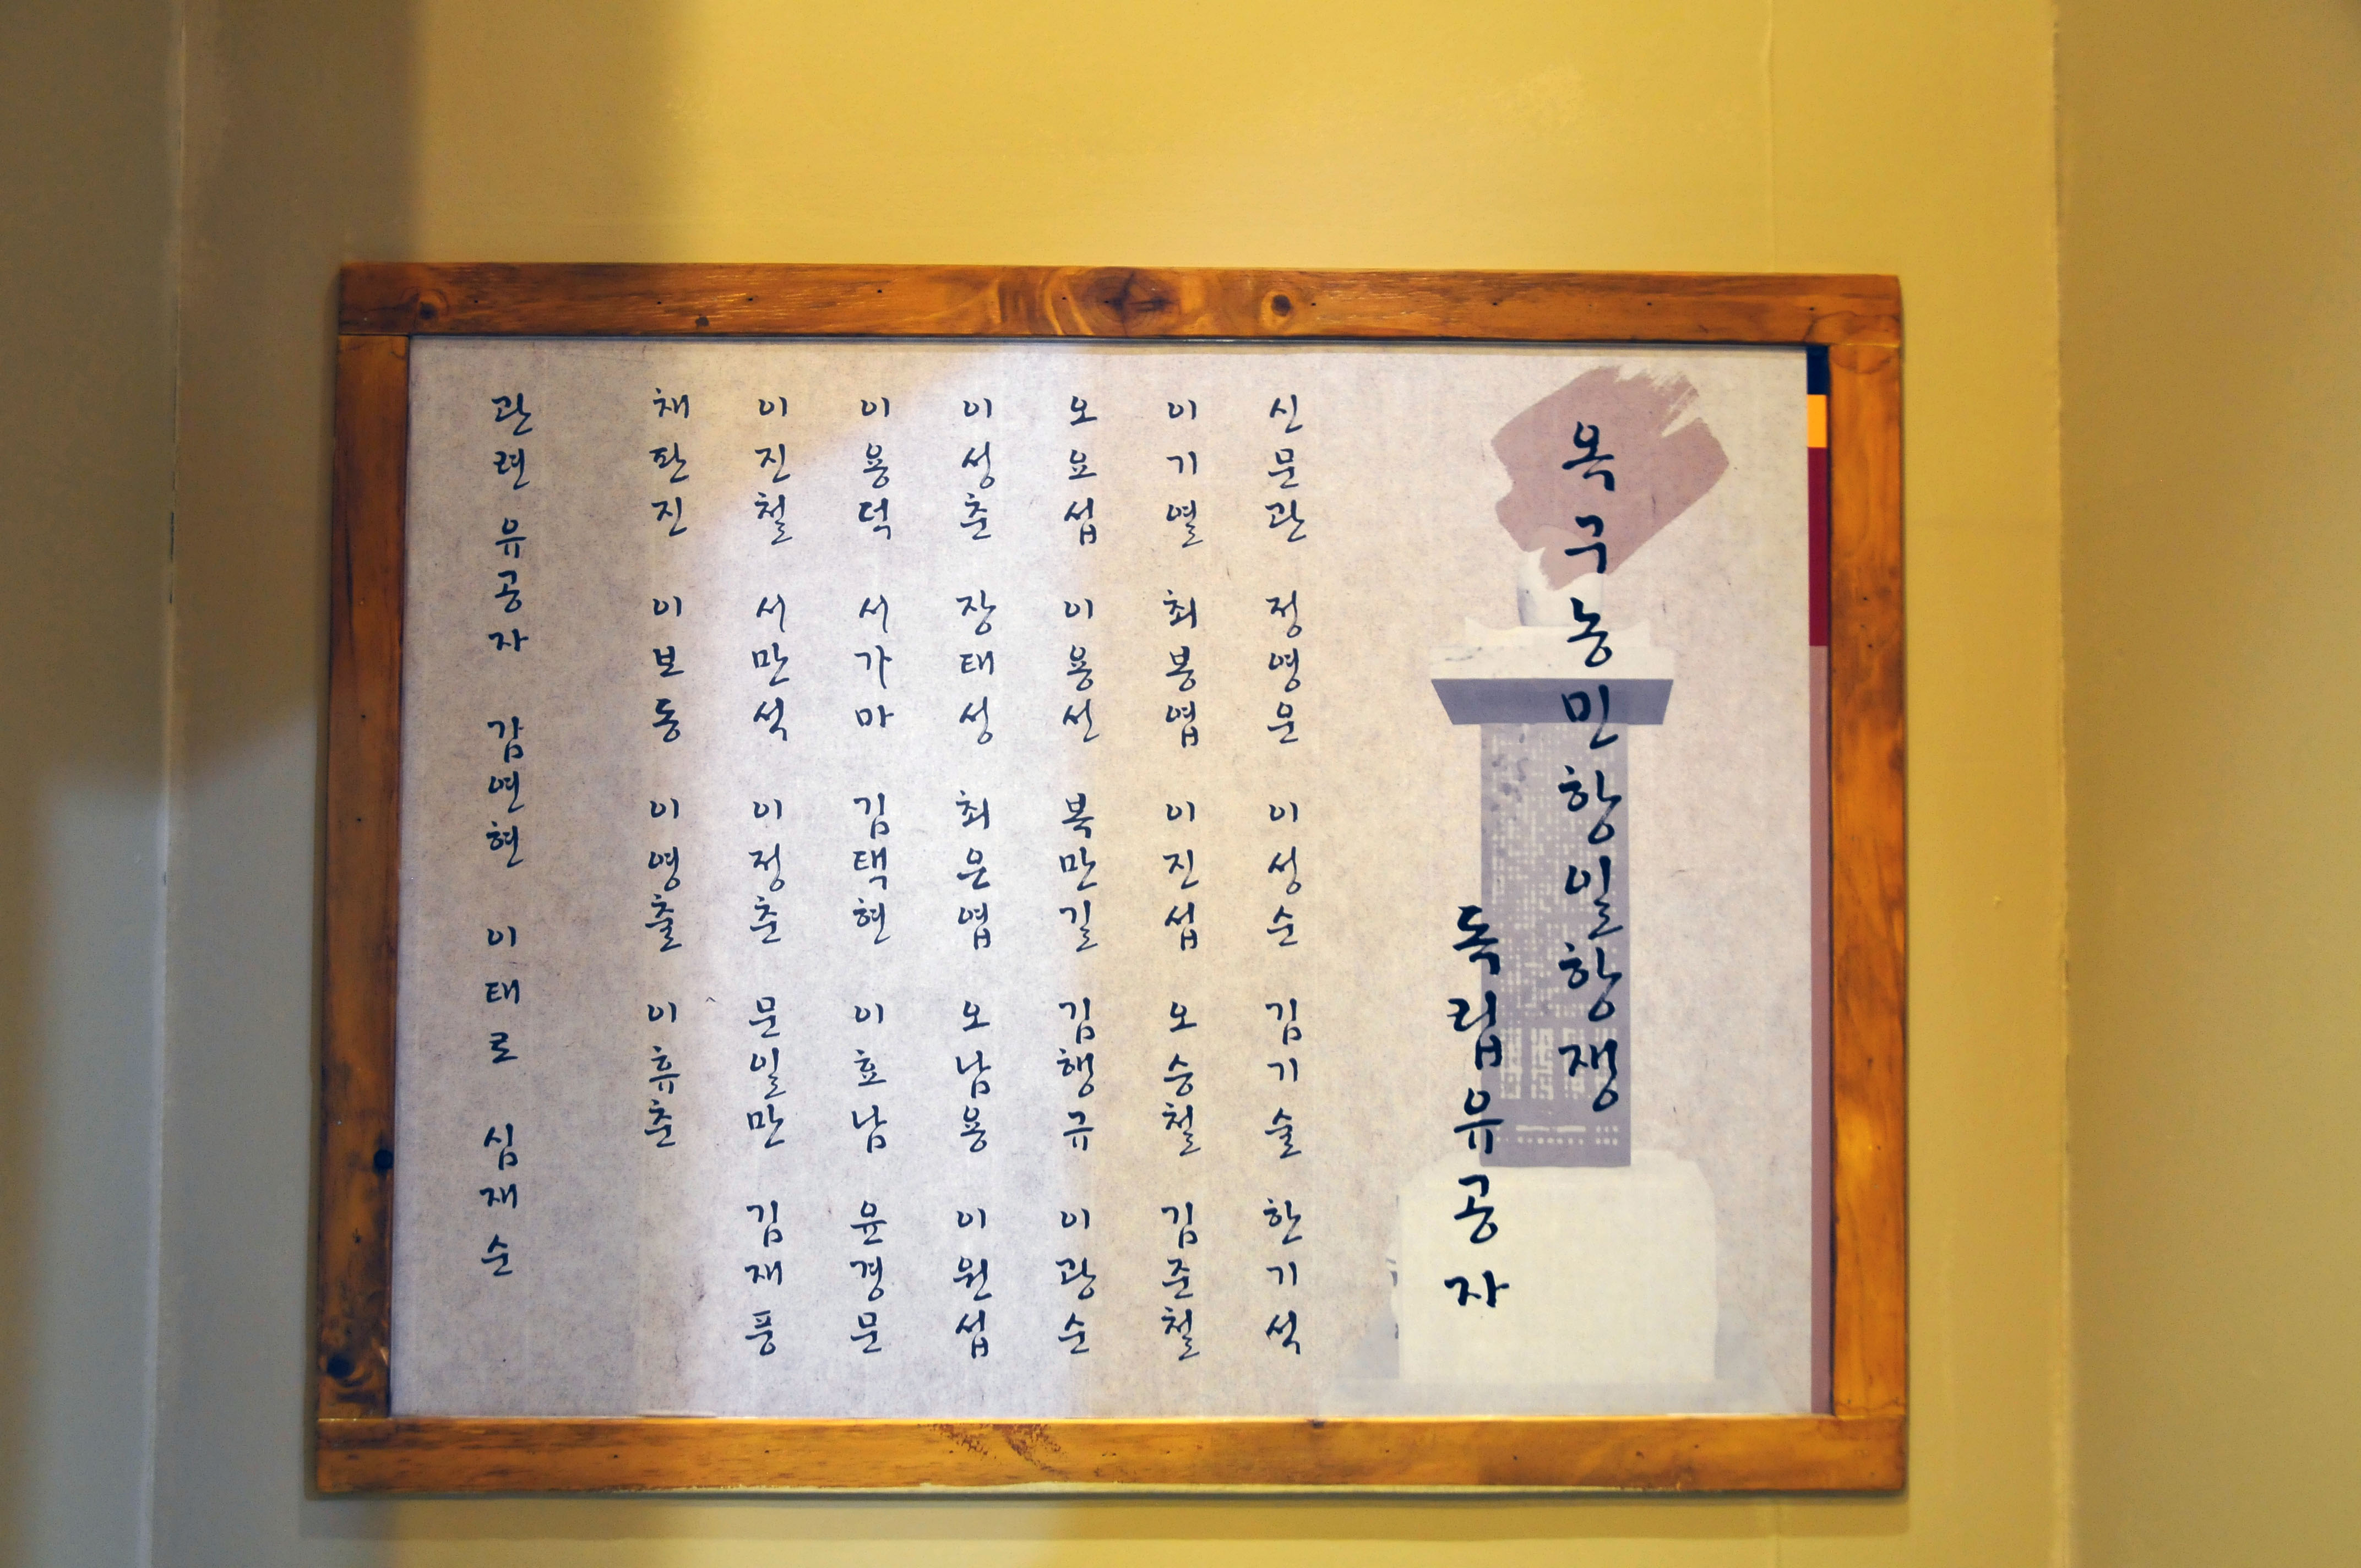 옥구농민항일항쟁
독립유공자
신문관 정영운 이성순 김기술 한기석
이기열 최봉엽 이진섭 오승철 김준철
오요섭 이용선 복만길 김행규 이광순
이성춘 장태성 최운엽 오남용 이원섭
이용덕 서가마 김택현 이효남 윤경문
이진철 서만석 이정춘 문일만 김재풍
채판진 이보동 이영춘 이휴춘
관련 유공자 감연현 이태로 심재순